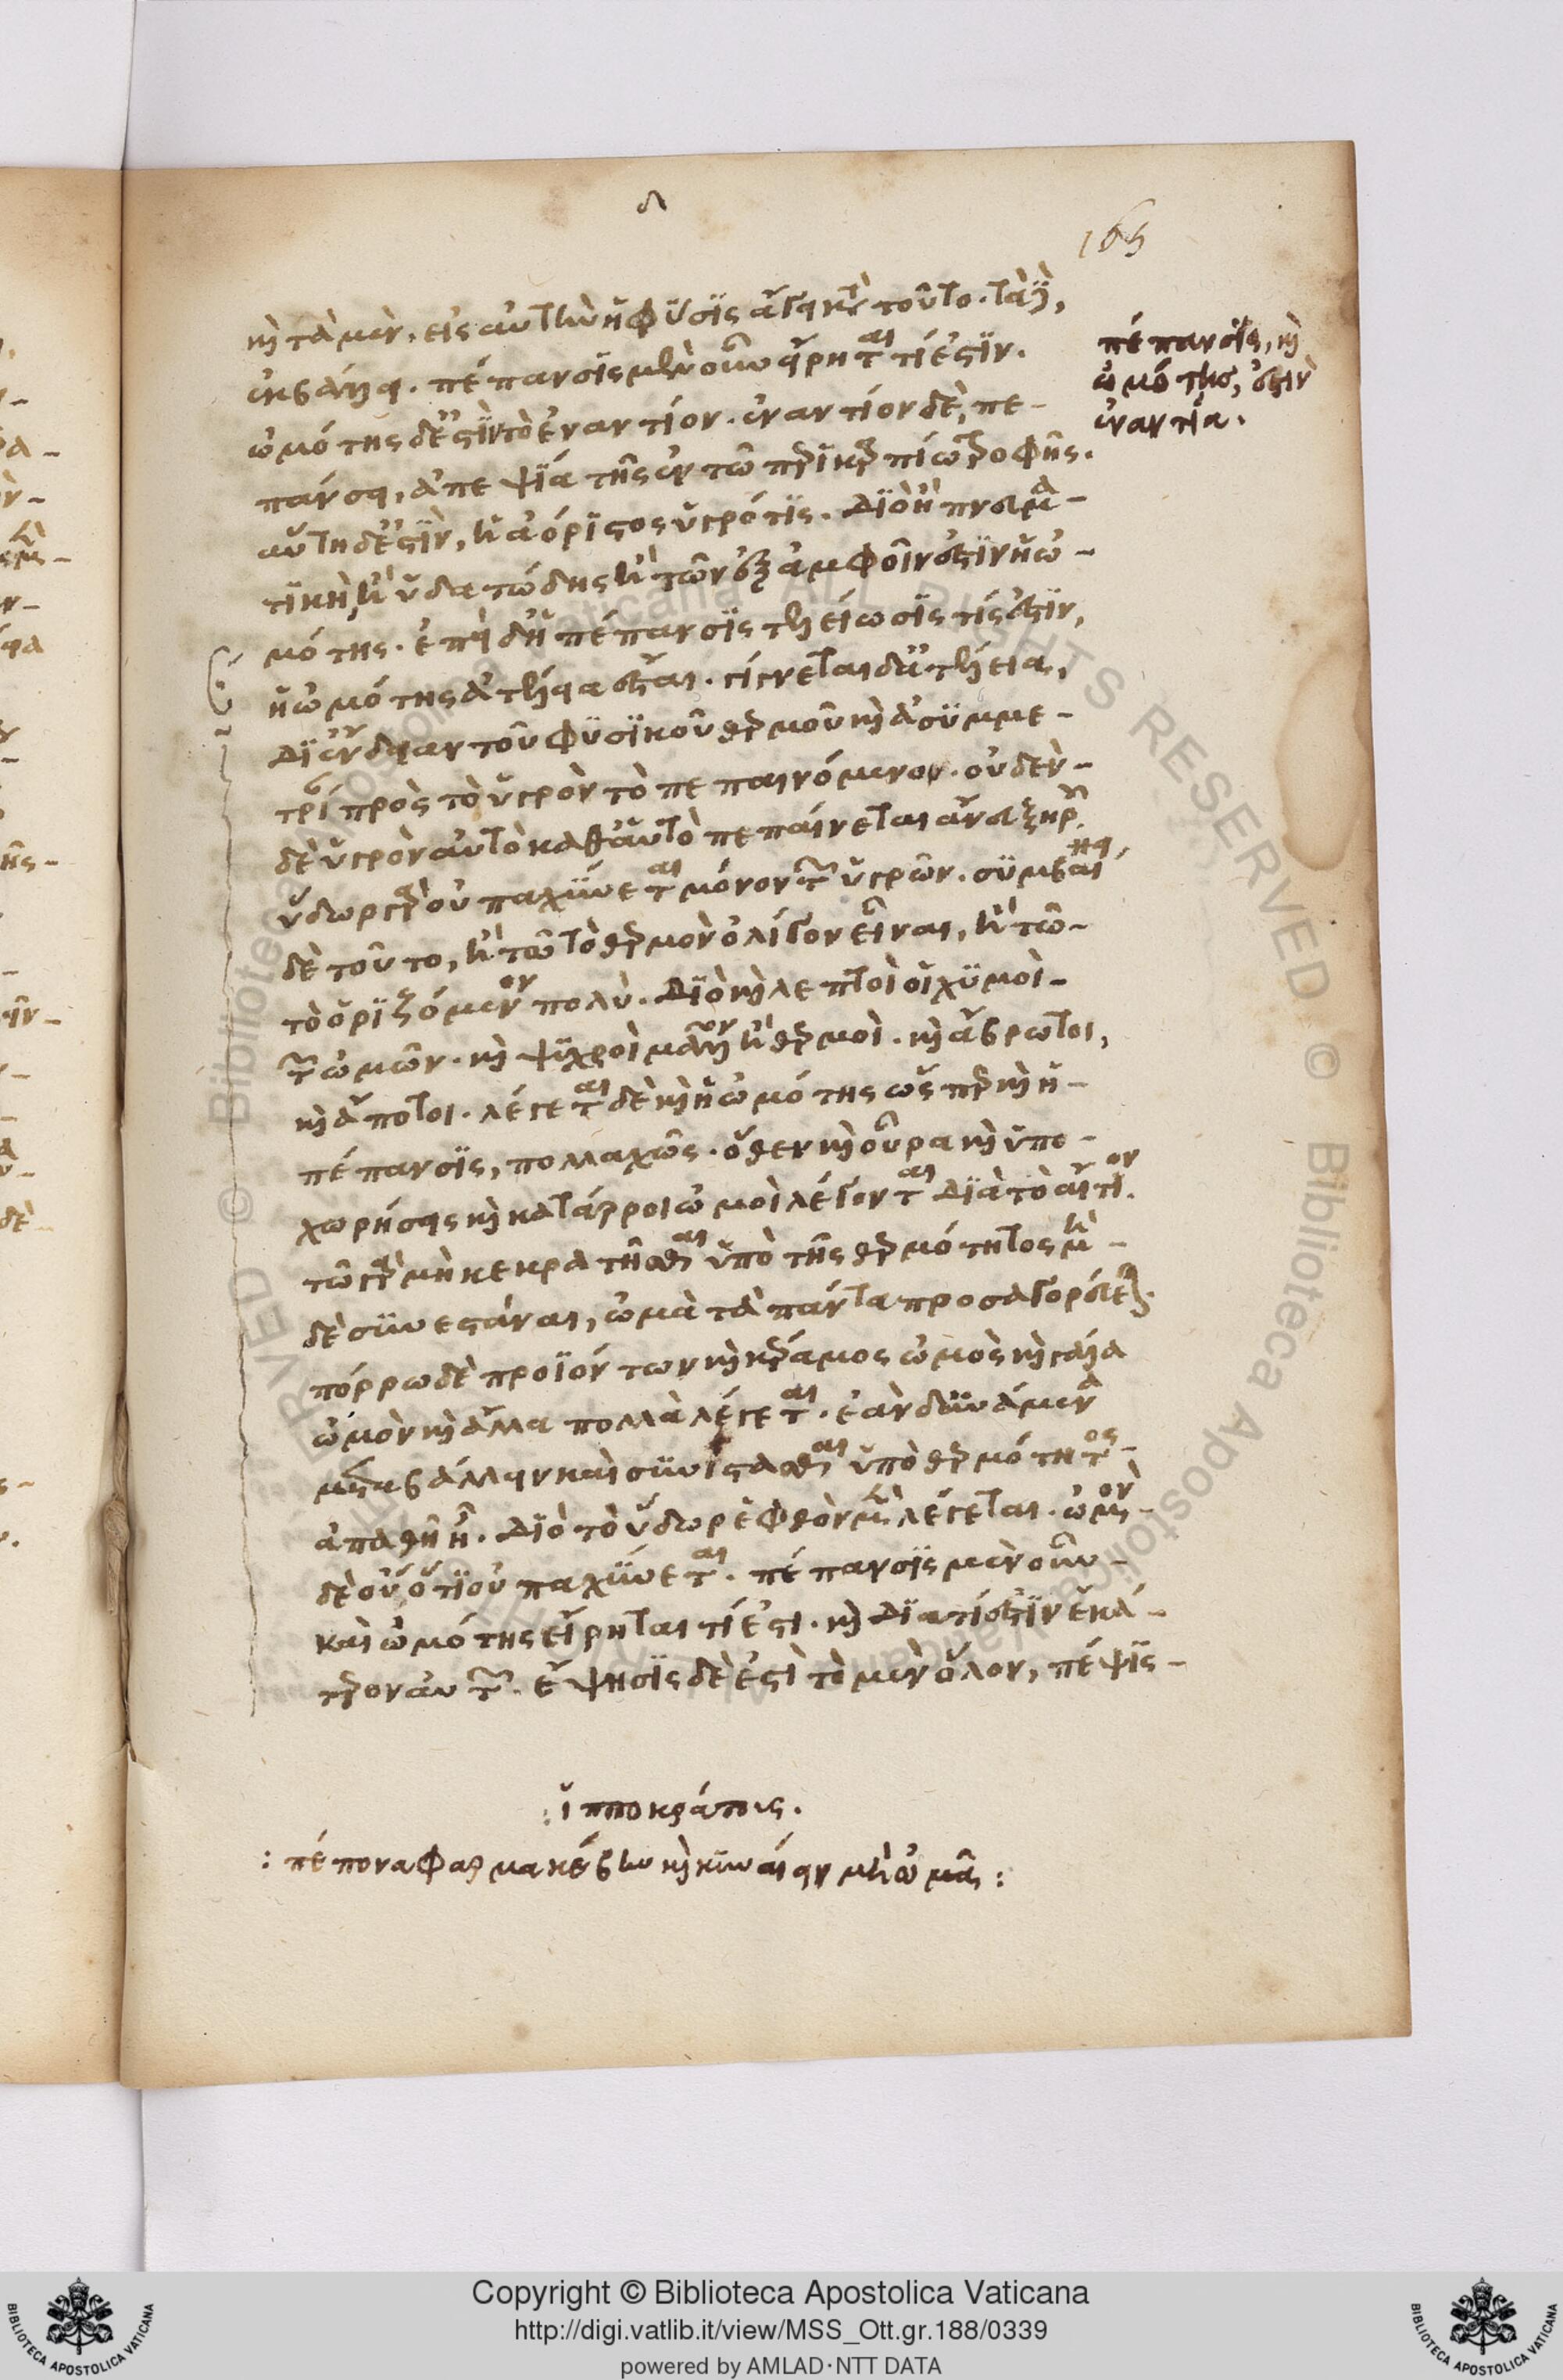 δ
165
καὶ τὰ μὲν, εἰς αὐτὴν ἡ φύσις ἄγει κατὰ τοῦτο. τὰ δὲ,
ἐκβάλλει. πέπανσις μὲν οὖν εἴρηται τί ἐστιν.
ὠμότης δ' ἐστὶ τὸ ἐναντίον. ἐναντίον δὲ, πε-
πάνσει, ἀπεψία τῆς ἐν τῷ περικαρπίῳ τροφῆς.
αὕτη δ' ἐστὶν, ἡ ἀόριστος ὑγρότης. διὸ ἢ πνευμα-
τικὴ, ἢ ὑδατώδης ἢ τῶν ἐξ ἀμφοῖν ἐστὶν ἡ ὠ-
μότης. ἐπεὶ δ' ἡ πέπανσις τελείωσίς τίς ἐστιν,
ἡ ὠμότης ἀτέλεια ἔσται. γίγνεται δ' ἡ ἀτέλεια,
δι' ἔνδειαν τοῦ φυσικοῦ θερμοῦ καὶ ἀσυμμε-
τρίαν πρὸς τὸ ὑγρὸν τὸ πεπαινόμενον. οὐδὲν
δὲ ὑγρὸν αὐτὸ καθ' αὑτὸ πεπαίνεται ἄνευ ξηροῦ.
ὕδωρ γὰρ οὐ παχύνεται μόνον τῶν ὑγρῶν. συμβαίνει
δὲ τοῦτο, ἢ τῷ τὸ θερμὸν ὀλίγον εἶναι, ἢ τῷ
τὸ ὁριζόμενον πολύ. διὸ καὶ λεπτοὶ οἱ χυμοὶ
τῶν ὠμῶν. καὶ ψυχροὶ μᾶλλον ἢ θερμοὶ. καὶ ἄβρωτοι,
καὶ ἄποτοι. λέγεται δὲ καὶ ἡ ὠμότης ὥσπερ καὶ ἡ
πέπανσις, πολλαχῶς. ὅθεν καὶ οὖρα καὶ ὑπο-
χωρήσεις καὶ κατάρροι ὠμοὶ λέγονται διὰ τὸ αἴτιον.
τῷ γὰρ μὴ κεκρατῆσθαι ὑπὸ τῆς θερμότητος μη-
δὲ συνεστάναι, ὠμὰ τὰ πάντα προσαγορεύεται.
πόρρω δὲ προϊόντων καὶ κέραμος ὠμὸς καὶ γάλα
ὠμὸν καὶ ἄλλα πολλὰ λέγεται. ἐὰν δυνάμενα
μεταβάλλειν καὶ συνίστασθαι ὑπὸ θερμότητος
ἀπαθῆ ᾖ. διὸ τὸ ὕδωρ ἑφθὸν μὲν λέγεται. ὠμὸν
δὲ οὔ, ὅτι οὐ παχύνεται. πέπανσις μὲν οὖν
καὶ ὠμότης εἴρηται τί ἐστι. καὶ διὰ τί ἐστιν ἑκά-
τερον αὐτῶν. ἕψησις δὲ ἐστὶ τὸ μὲν ὅλον, πέψις
πέπανσις, καὶ
ὠμότης, ἐστὶν
ἐναντία.
ἱπποκράτους.
: πέπονα φαρμακεύειν καὶ κινέειν μὴ ὠμά :
Copyright © Biblioteca Apostolica Vaticana
http://digi.vatlib.it/view/MSS_Ott.gr.188/0339
powered by AMLAD·NTT DATA
BIBLIOTECA APOSTOLICA VATICANA
BIBLIOTECA APOSTOLICA VATICANA